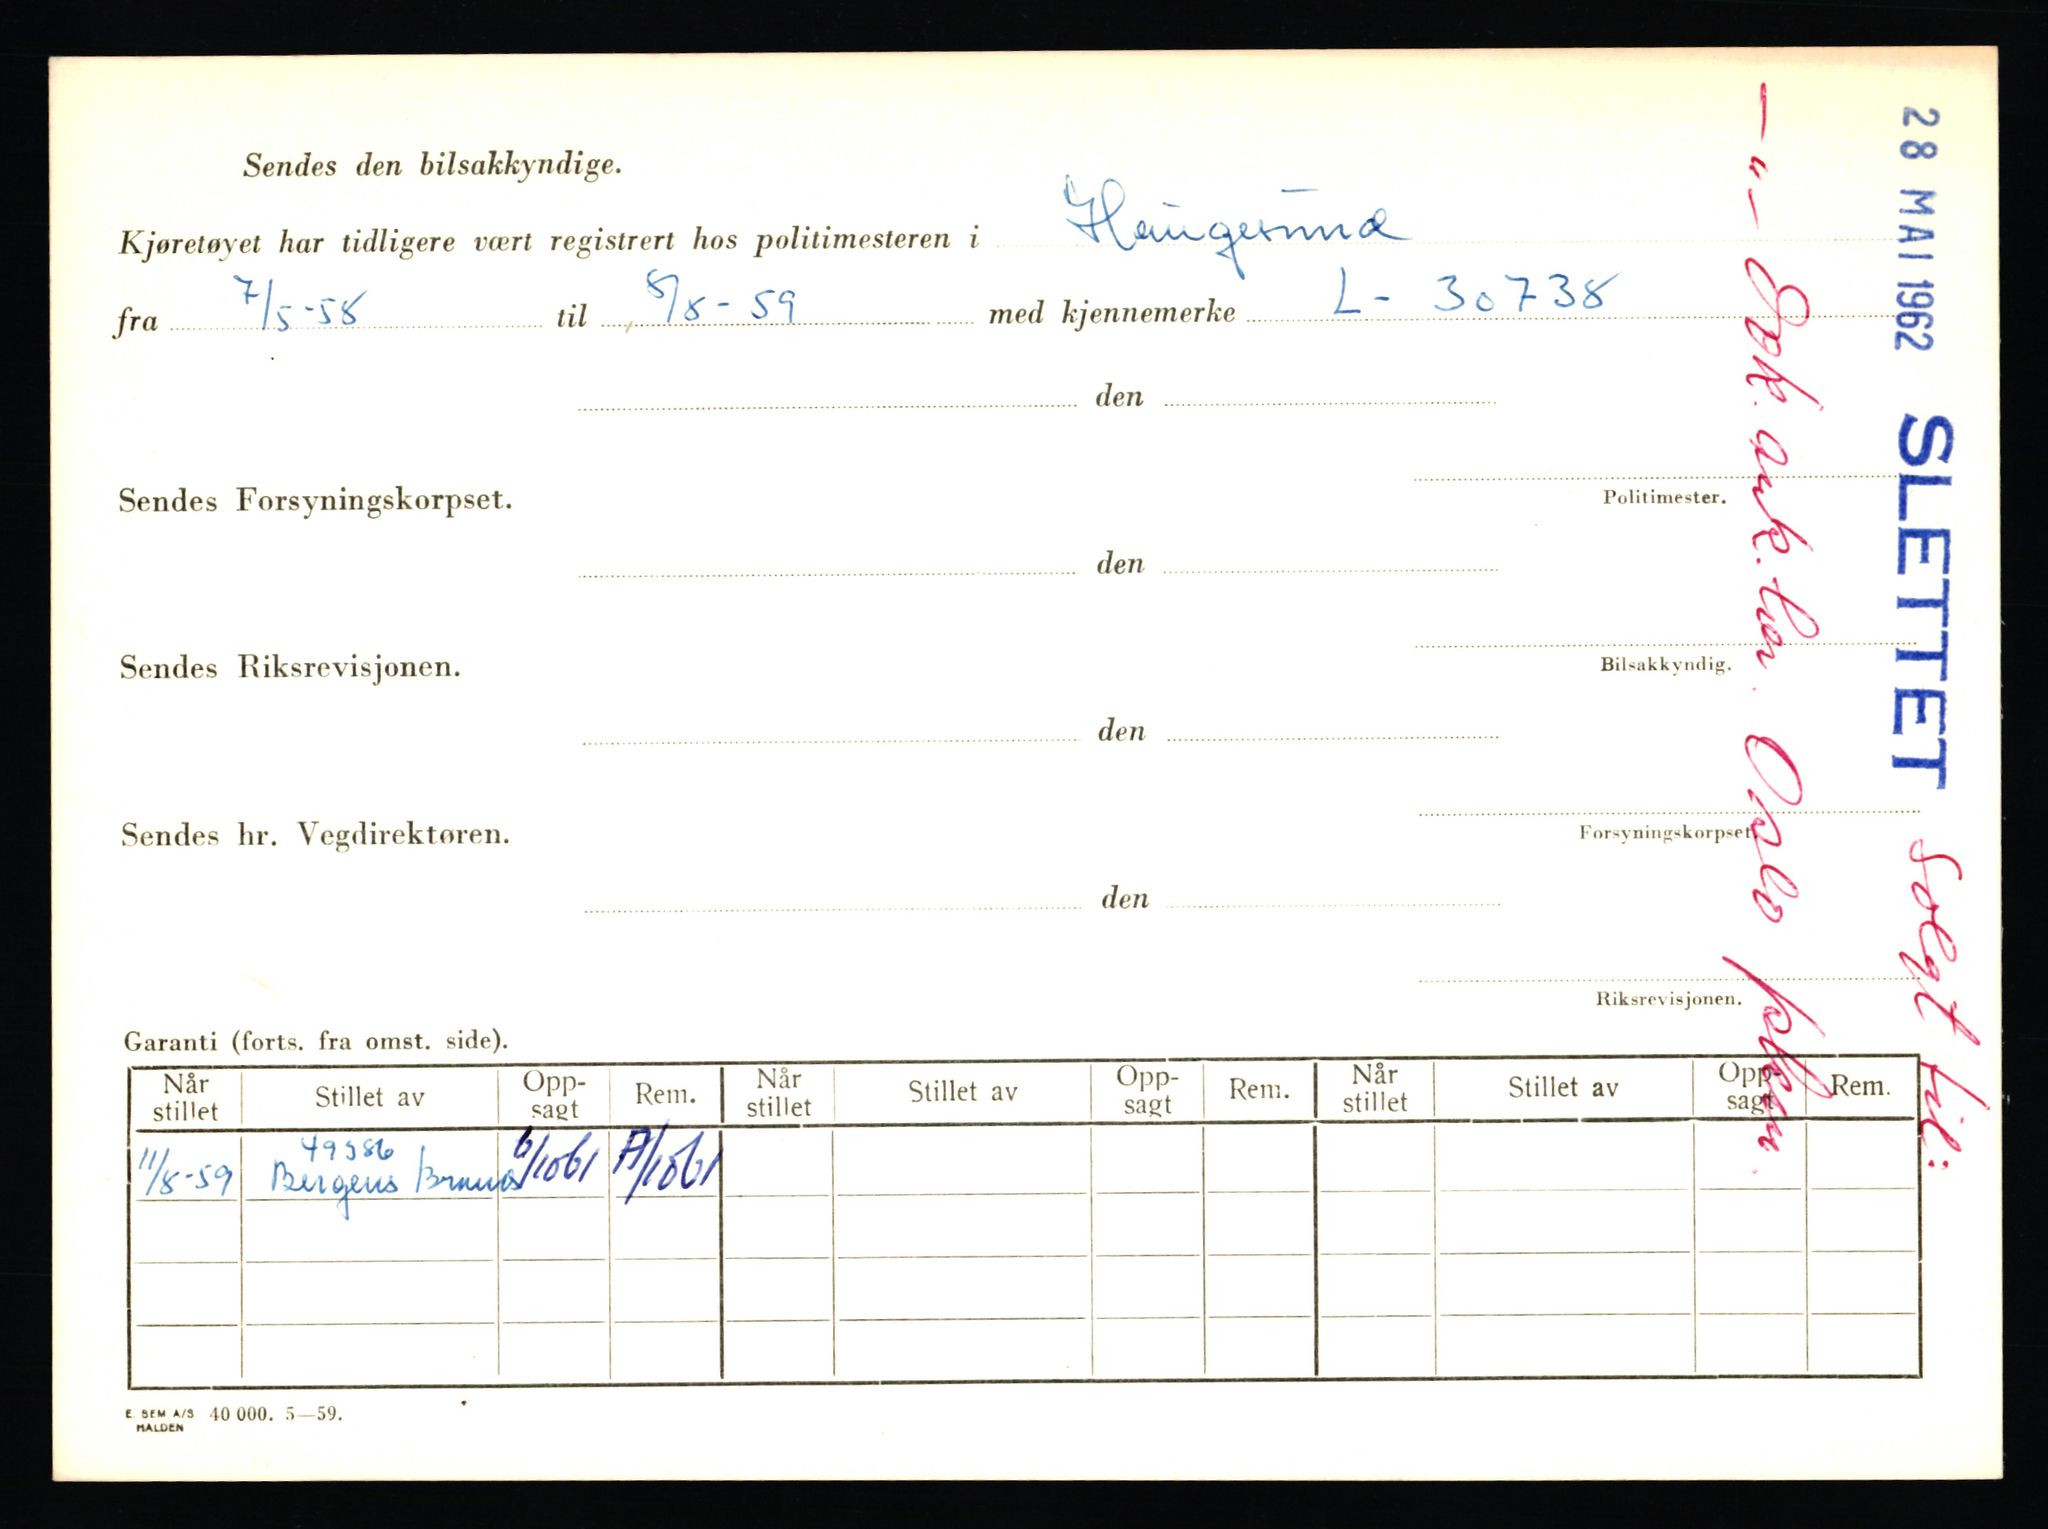 Sendes den bilsakkyndige.
Kjøretøyet har tidligere vært registrert hos politimesteren i Haugesund
fra 7/5-58 til 8/8-59 med kjennemerke L- 30738
den
Politimester.
Sendes Forsyningskorpset.
den
Bilsakkyndig.
Sendes Riksrevisjonen.
den
Forsyningskorpset.
Sendes hr. Vegdirektøren.
den
Riksrevisjonen.
Garanti (forts. fra omst. side).
Når stillet Stillet av Opp-sagt Rem. Når stillet Stillet av Opp-sagt Rem. Når stillet Stillet av Opp-sagt Rem.
49386
11/8-59 Bergens Brann 6/1061
E. SEM A/S 40 000. 5—59.
HALDEN
28 MAI 1962 SLETTET Solgt til:
—"— Oslo